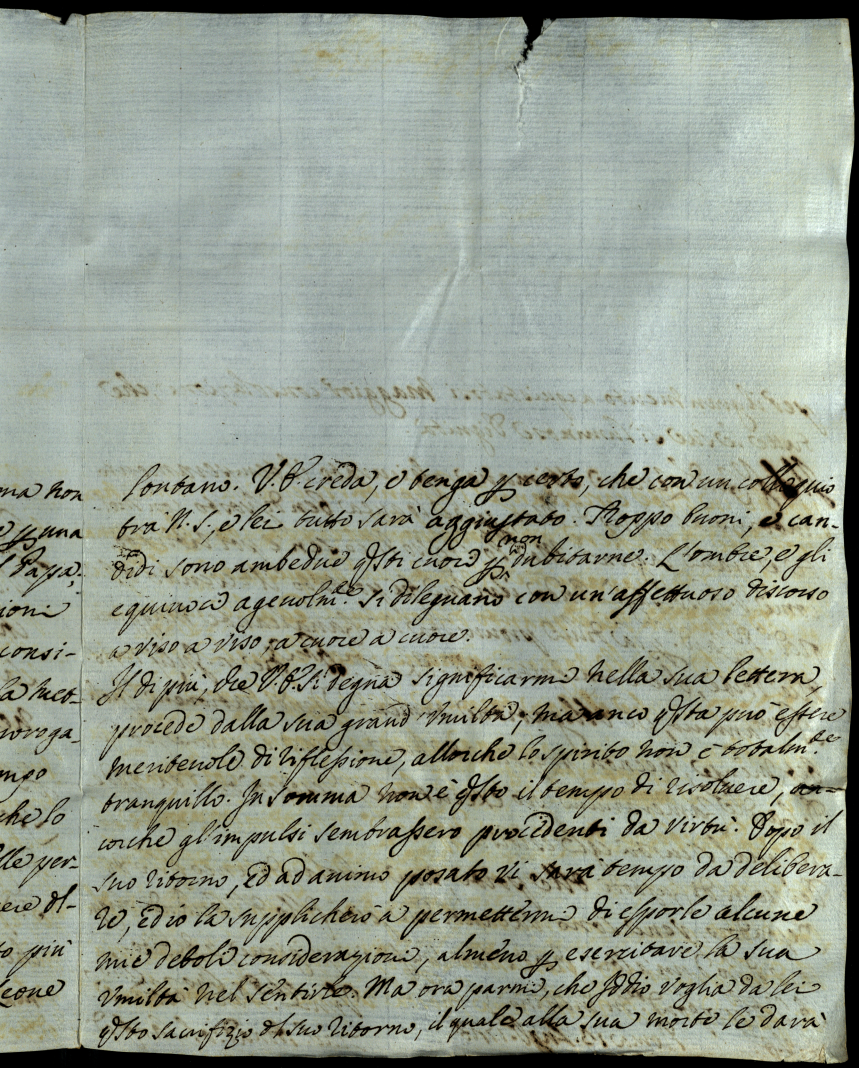 ma non
e p una
l Papa.
ioni
consi-
la met-
roroga-
mpo
che lo
lle per-
ere dl-
to più
leone
lontano. V.E. creda, e tenga p certo, che con un colloquio
trà N.S., e lei tutto sarà aggiustato. Troppo buoni, e can-
non
didi sono ambedue qsti cuori p dubitarne. L'ombre, e gli
equivoci agevolmte. si dileguano con un'affettuoso discorso
a viso a viso, a cuore a cuore.
Il di più, che V.E. si degna significarmi nella sua lettera,
procede dalla sua grand'umiltà, ma anco qsta può essere
meritevole di riflessione, allorche lo spirito non è totalmte.
tranquillo. In somma non è qsto il tempo di risolvere, an-
corche gl'impulsi sembrassero procedenti da virtù. Dopo il
suo ritorno, ed ad animo posato vi sarà tempo da delibera-
re, ed io la supplicherò a permettermi di esporle alcune
mie deboli considerazioni, almeno p esercitare la sua
umiltà nel sentirle. Ma ora parmi, che Iddio voglia da lei
qsto sacrifizio dl suo ritorno, il quale alla sua morte le darà